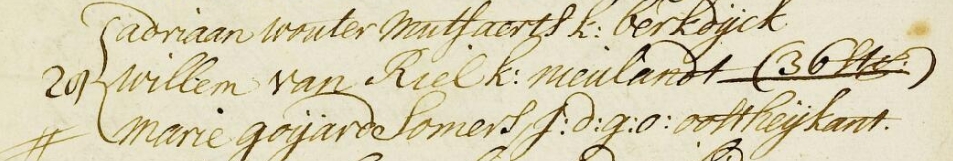 adriaan wouter Mutsaerts k: berkdijck
28 willem van Riel k: nieulandt (36 str.)
# Marie goijard Somers, j: d: g: o: oostheijkant.